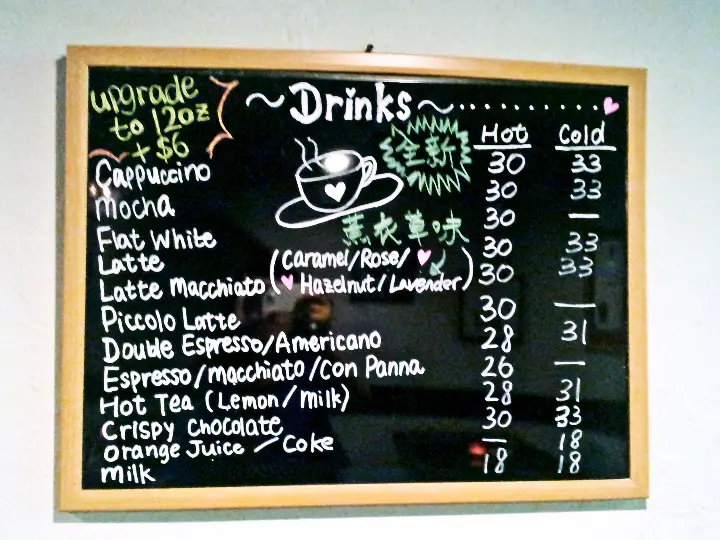 upgrade
to 12oz
+ $6
~Drinks~
全新
Hot Cold
Cappuccino 30 33
Mocha 30 33
Flat White 30 —
薰衣草味
Latte 30 33
(Caramel/Rose/
Latte Macchiato 30 33
Hazelnut/Lavender)
Piccolo Latte 30 —
Double Espresso/Americano 28 31
Espresso/Macchiato/Con Panna 26 —
Hot Tea (Lemon/Milk) 28 31
Crispy Chocolate 30 33
Orange Juice / Coke — 18
Milk 18 18